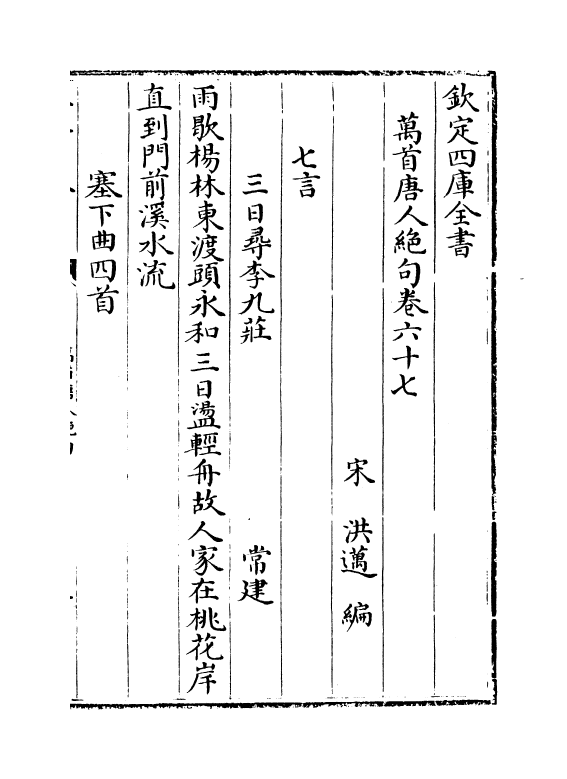 欽定四庫全書
萬首唐人絕句卷六十七
宋 洪邁 編
七言
三日尋李九莊 常建
雨歇楊林東渡頭永和三日盪輕舟故人家在桃花岸
直到門前溪水流
塞下曲四首